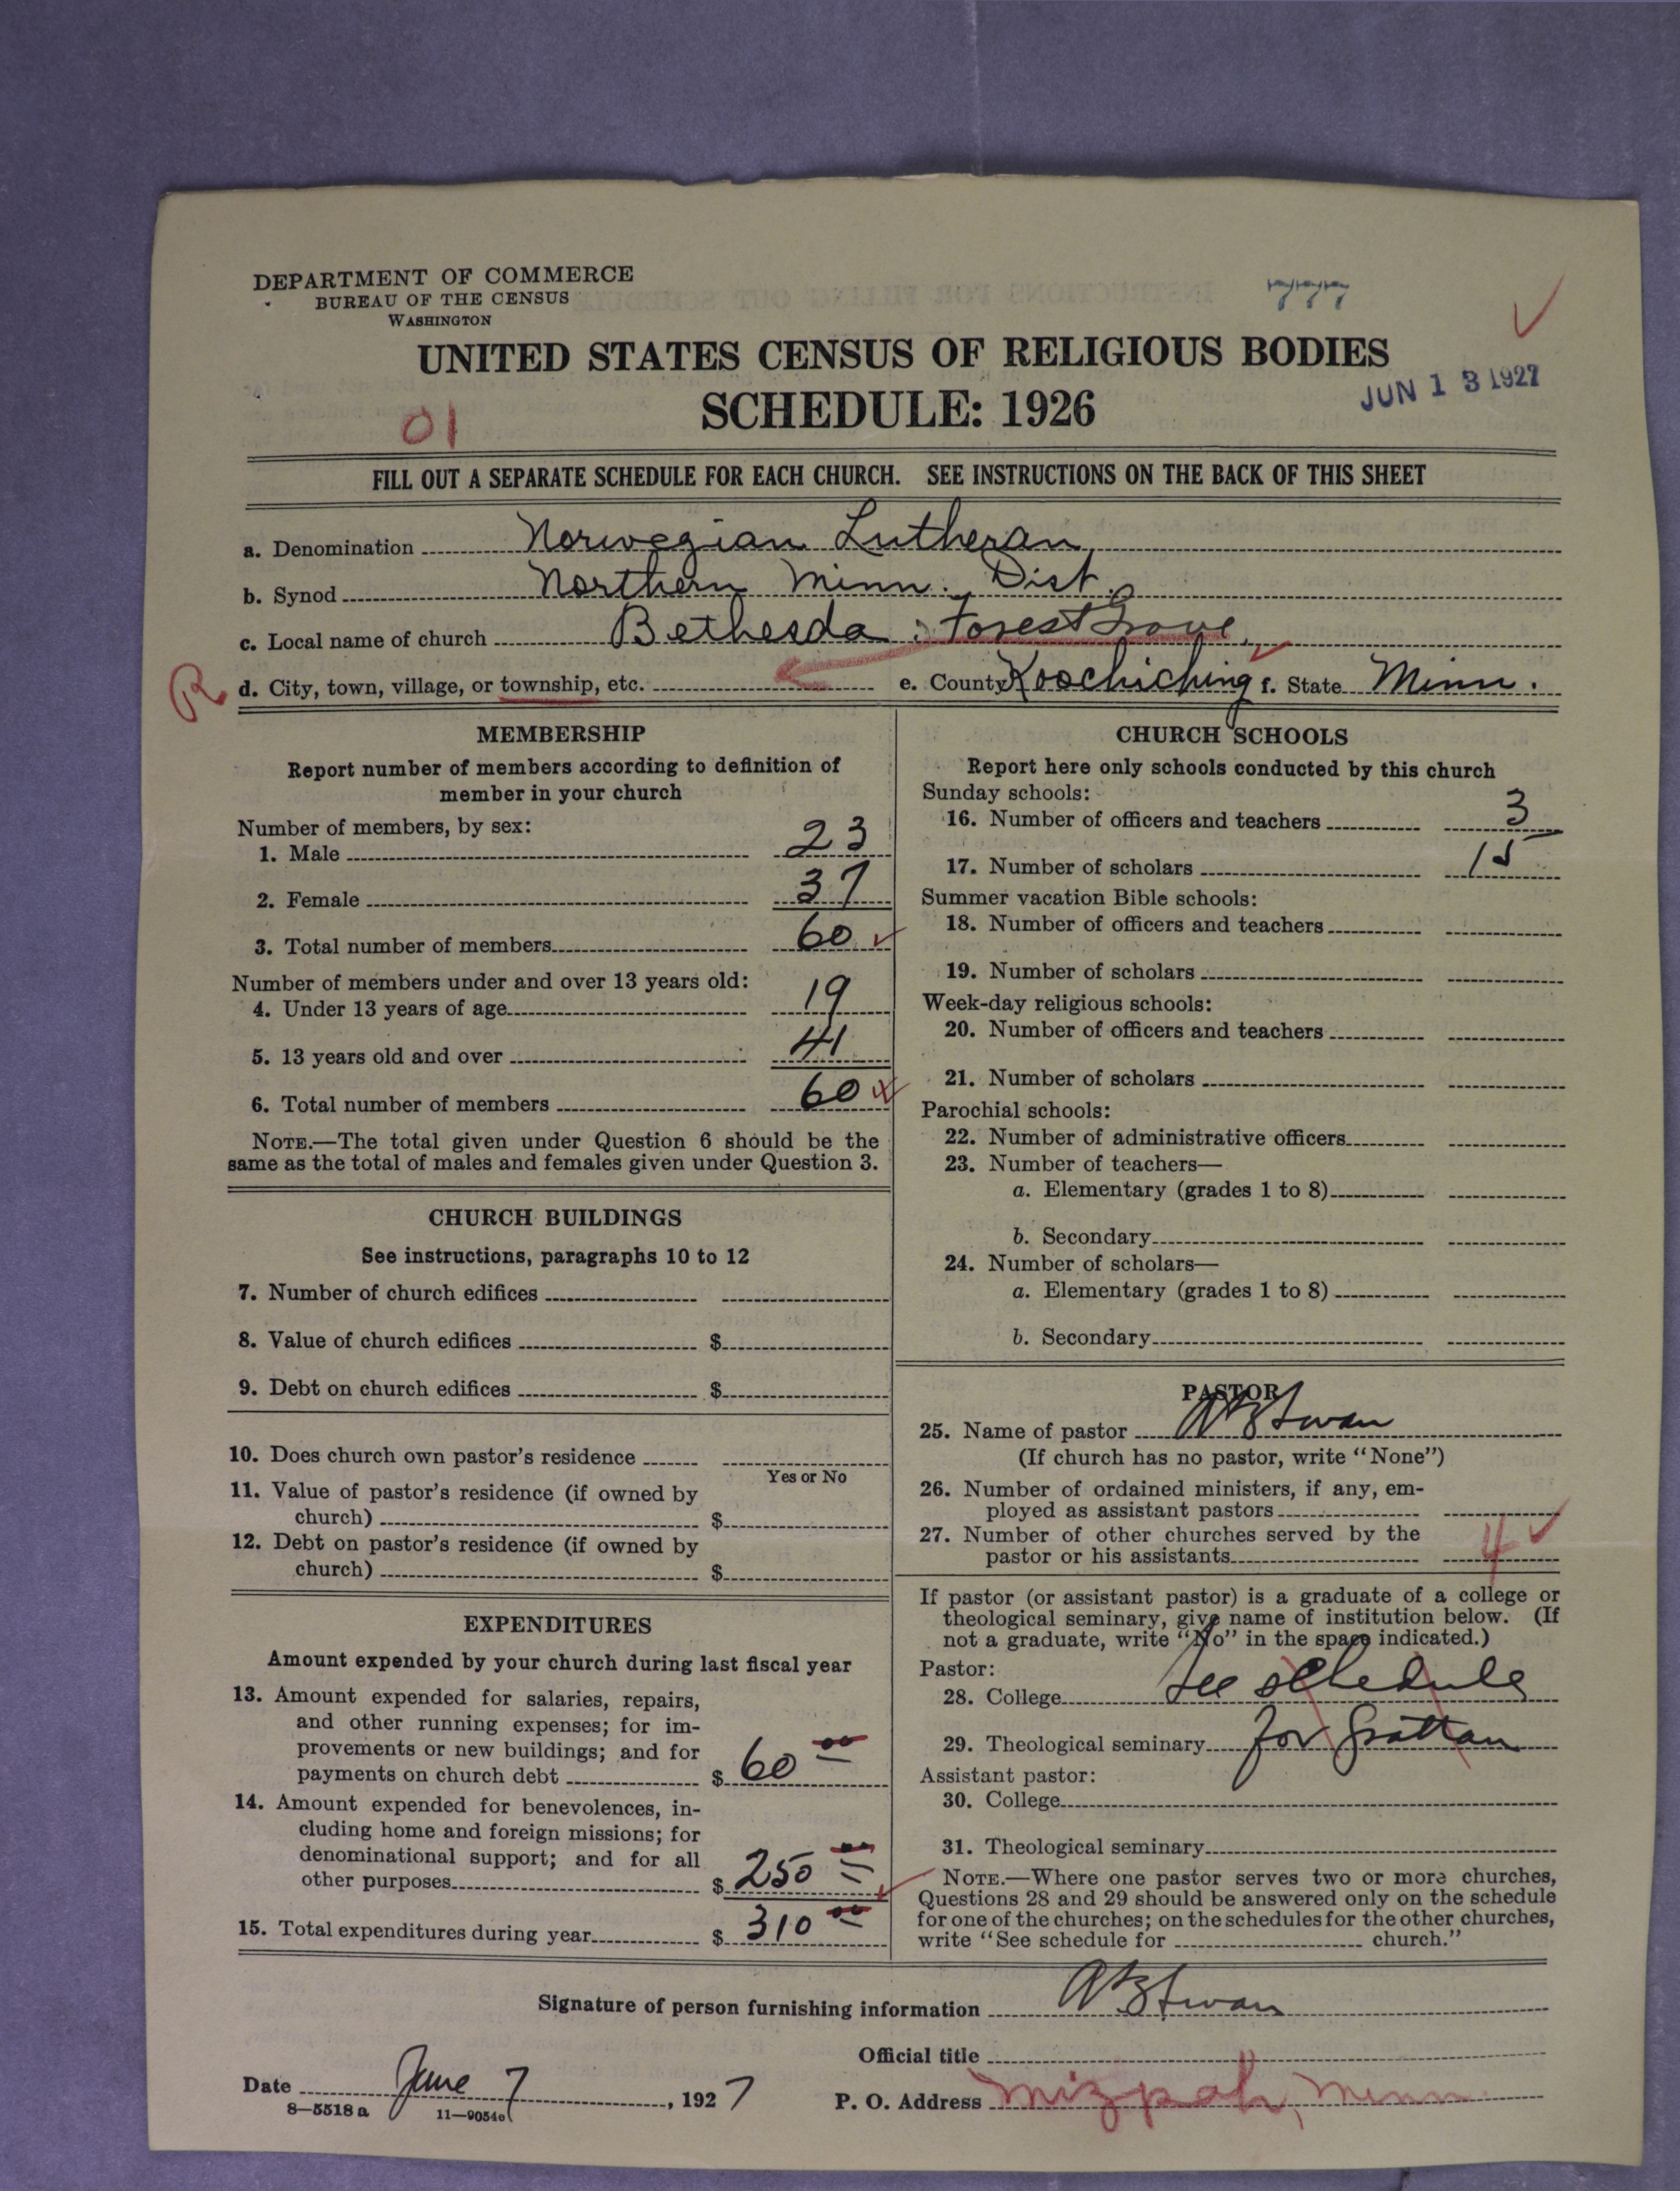 DEPARTMENT OF COMMERCE
BUREAU OF THE CENSUS
WASHINGTON
777
UNITED STATES CENSUS OF RELIGIOUS BODIES
SCHEDULE: 1926
JUN 13 1927
01
FILL OUT A SEPARATE SCHEDULE FOR EACH CHURCH. SEE INSTRUCTIONS ON THE BACK OF THIS SHEET
a. Denomination Norwegian Lutheran
b. Synod Northern Minn. Dist.
c. Local name of church Bethesda : Forest Grove
R d. City, town, village, or township, etc. e. County Koochiching f. State Minn.
MEMBERSHIP
Report number of members according to definition of
member in your church
Number of members, by sex:
1. Male 23
2. Female 37
3. Total number of members 60
Number of members under and over 13 years old:
4. Under 13 years of age 19
5. 13 years old and over 41
6. Total number of members 60
NOTE.—The total given under Question 6 should be the
same as the total of males and females given under Question 3.
CHURCH BUILDINGS
See instructions, paragraphs 10 to 12
7. Number of church edifices
8. Value of church edifices $
9. Debt on church edifices $
10. Does church own pastor's residence
Yes or No
11. Value of pastor's residence (if owned by
church) $
12. Debt on pastor's residence (if owned by
church) $
EXPENDITURES
Amount expended by your church during last fiscal year
13. Amount expended for salaries, repairs,
and other running expenses; for im-
provements or new buildings; and for
payments on church debt $ 60 00
14. Amount expended for benevolences, in-
cluding home and foreign missions; for
denominational support; and for all
other purposes $ 250 00
15. Total expenditures during year $ 310 00
CHURCH SCHOOLS
Report here only schools conducted by this church
Sunday schools:
16. Number of officers and teachers 3
17. Number of scholars 15
Summer vacation Bible schools:
18. Number of officers and teachers
19. Number of scholars
Week-day religious schools:
20. Number of officers and teachers
21. Number of scholars
Parochial schools:
22. Number of administrative officers
23. Number of teachers—
a. Elementary (grades 1 to 8)
b. Secondary
24. Number of scholars—
a. Elementary (grades 1 to 8)
b. Secondary
PASTOR
25. Name of pastor
(If church has no pastor, write "None")
26. Number of ordained ministers, if any, em-
ployed as assistant pastors
27. Number of other churches served by the
pastor or his assistants 4
If pastor (or assistant pastor) is a graduate of a college or
theological seminary, give name of institution below. (If
not a graduate, write "No" in the space indicated.)
Pastor:
28. College See schedule
29. Theological seminary for Grattan
Assistant pastor:
30. College
31. Theological seminary
NOTE.—Where one pastor serves two or more churches,
Questions 28 and 29 should be answered only on the schedule
for one of the churches; on the schedules for the other churches,
write "See schedule for church."
Signature of person furnishing information
Official title
Date June 7, 1927
P. O. Address Mizpah, Minn.
8—5518 a 11—9054